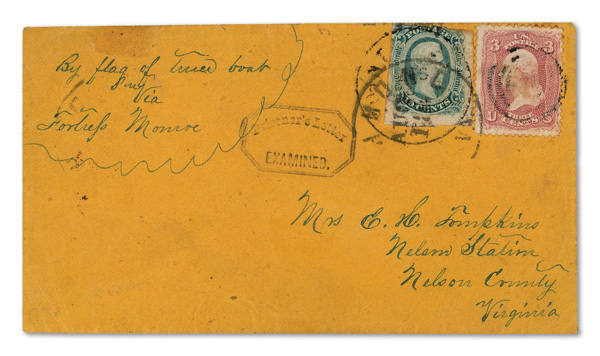 By flag of truce boat
Via
Fortress Monroe
Prisoner's Letter
EXAMINED.
POSTAGE
CENTS
U.S. POSTAGE
3 3
THREE
CENTS
Mrs E. H. Tompkins
Nelson Station
Nelson County
Virginia